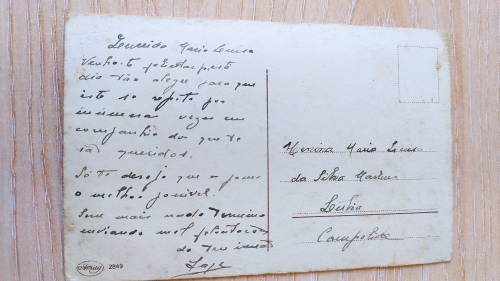 Querida Maria Luisa
Venho-te felicitar por este
dia tão alegre para que
este se repita por
inúmeras vezes em
companhia dos que te
são queridos.
Só te desejo que o passes
o melhor possivel.
Sem mais nada termino
enviando mil felicitações
do teu irmão
2849
Menina Maria Luisa
da Silva Martins
Campolide